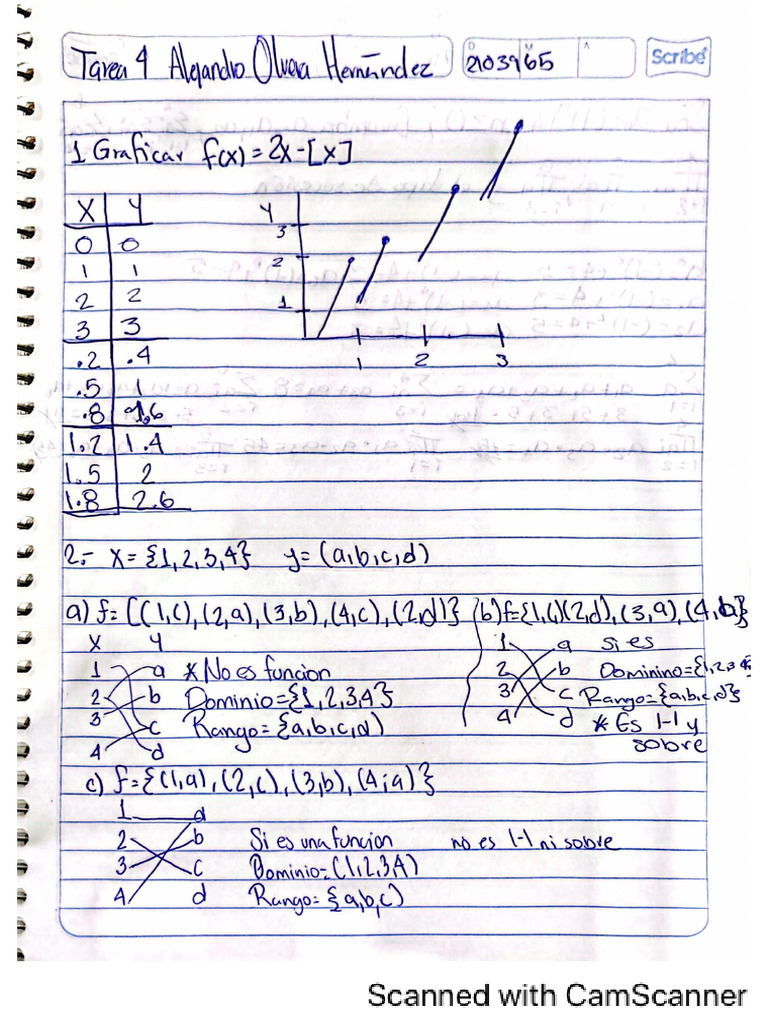 Tarea 4 Alejandro Olvera Hernández
2103965
Scribe
1 Graficar f(x) = 2x - [x]
X Y
0 0
1 1
2 2
3 3
.2 .4
.5 1
.8 1.6
1.2 1.4
1.5 2
1.8 2.6
Y
3
2
1
1 2 3
2.- X = {1,2,3,4} y = (a,b,c,d)
a) f = [(1,c),(2,a),(3,b),(4,c),(2,d)}
X Y
1 a * No es funcion
2 b Dominio = {1,2,3,4}
3 c Rango = {a,b,c,d)
4 d
b) f = {1,c)(2,d),(3,a),(4,b)}
1 a si es
2 b Dominino = {1,2,3,4}
3 c Rango = {a,b,c,d}
4 d * Es 1-1 y
sobre
c) f = {(1,a),(2,c),(3,b),(4,a)}
1 a
2 b Si es una funcion no es 1-1 ni sobre
3 c Dominio = (1,2,3,4)
4 d Rango = {a,b,c)
Scanned with CamScanner